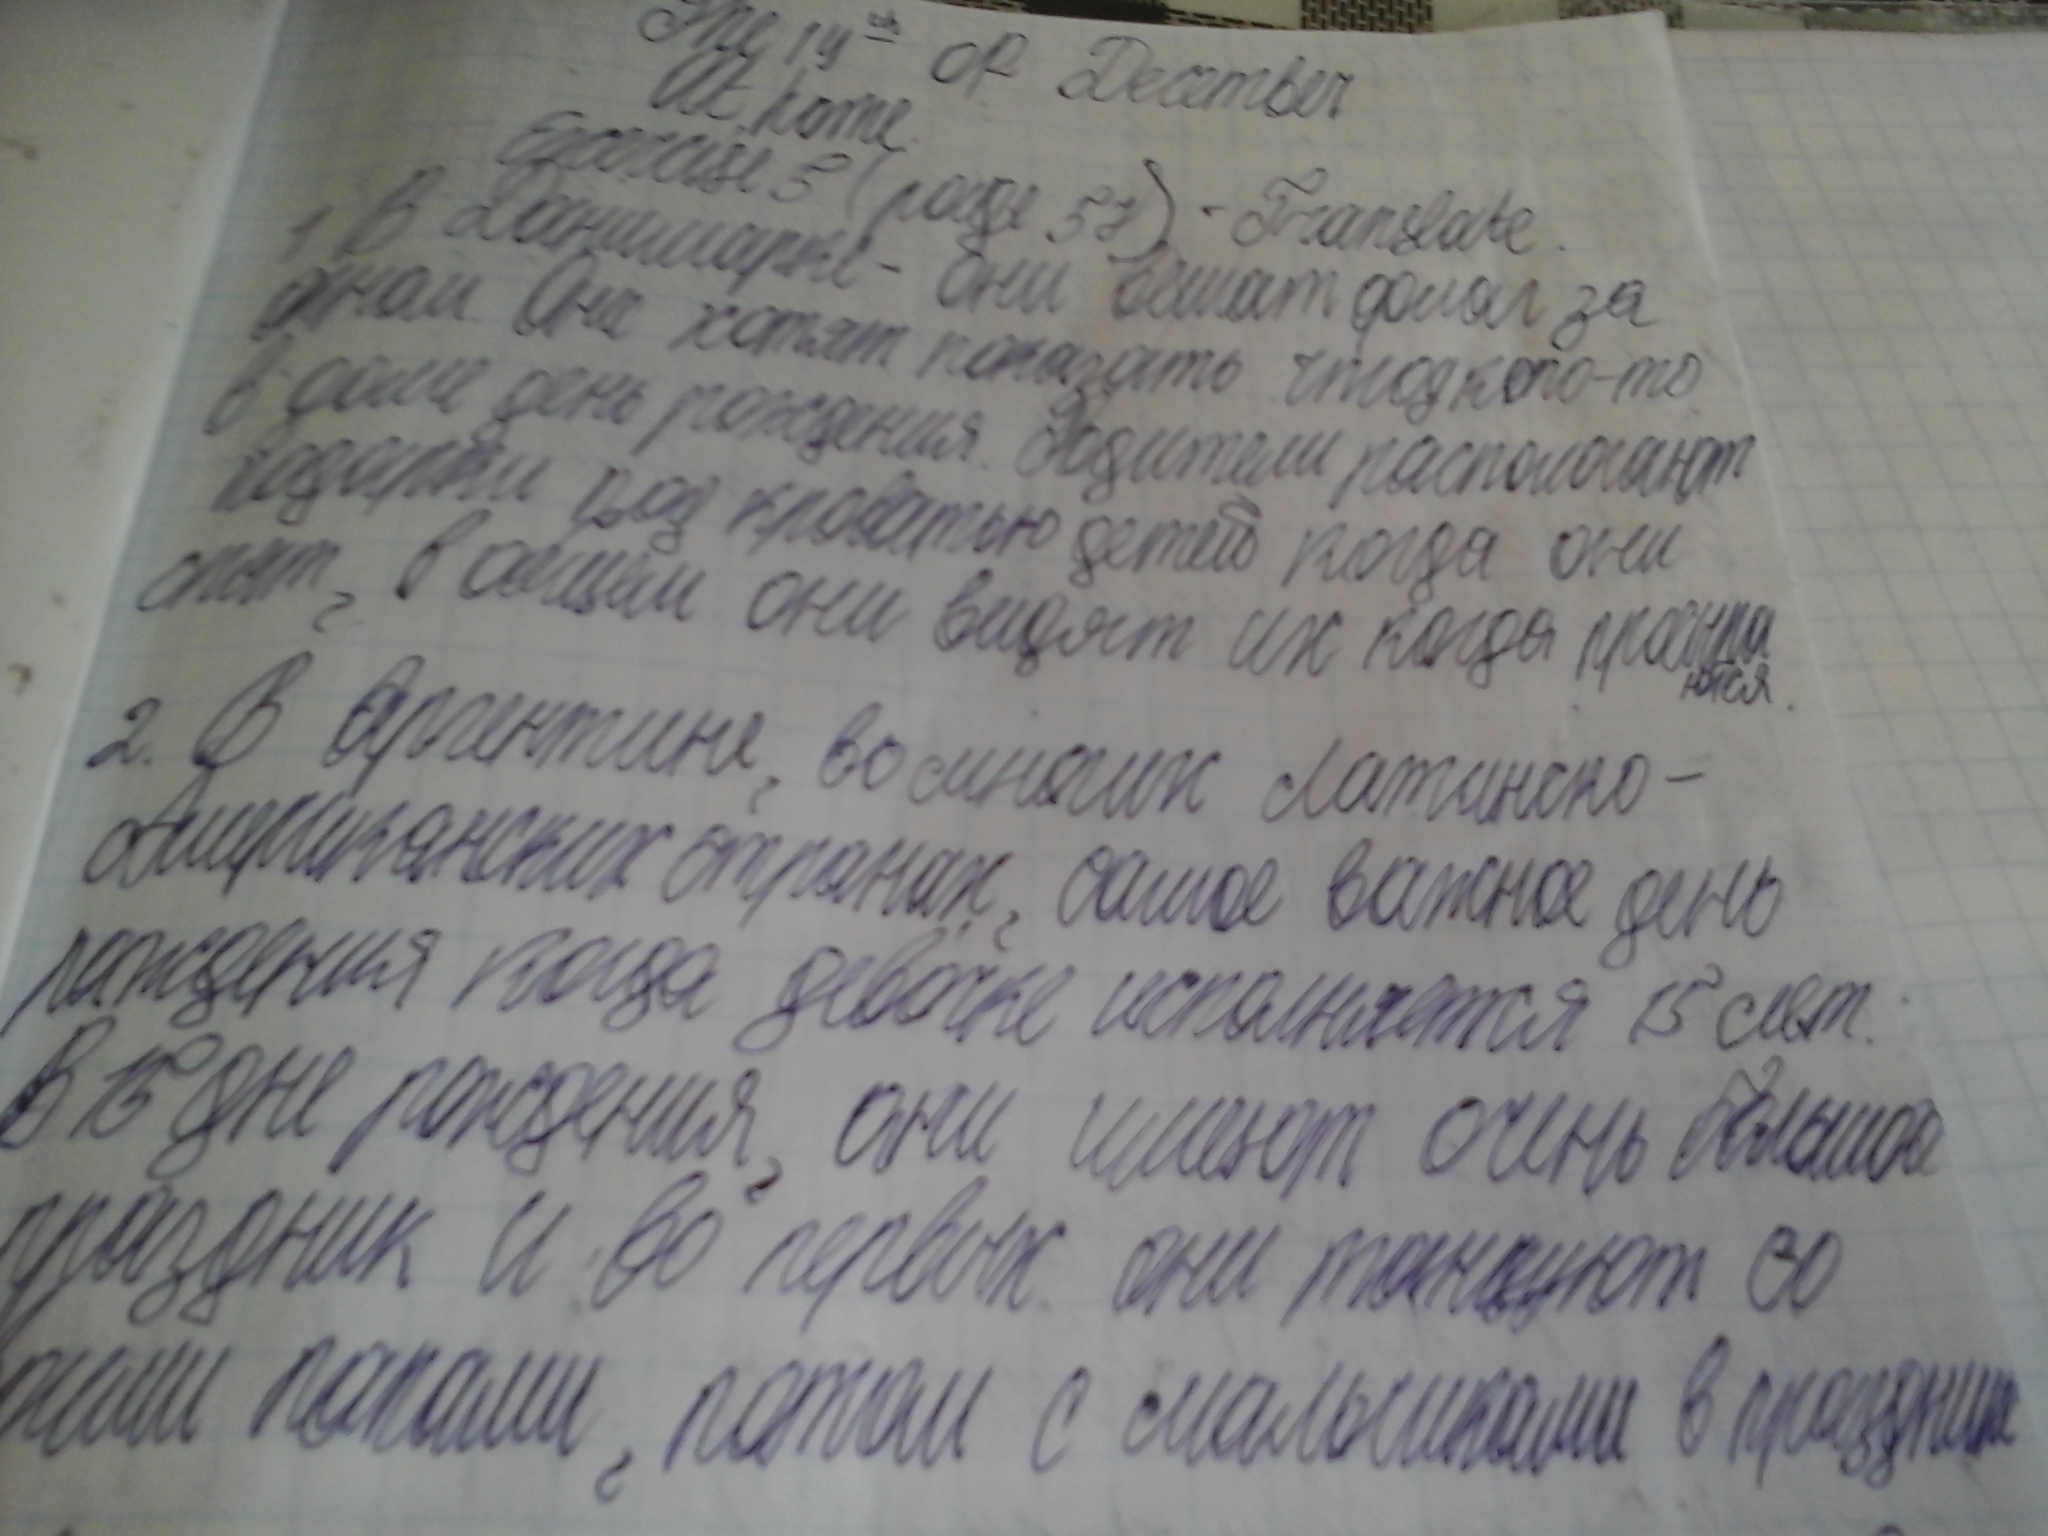 The 14th of December
At home.
Exercise 5 (page 57) - Translate.
1. В Данимарке - они вешат домал за
окном Они хотят показать что у кого-то
в доме день рождения. Родители распологают
подарки под кроватью детей когда они
спят, в общем они видят их когда просыпа
ются.
2. В Аргентине, во многих Латинско-
Американских странах, самое важное день
рождения когда девочке исполняется 15 лет.
В 15 дне рождения, они имеют очень большой
праздник и во первых они танцуют со
папами, потом с мальчиками в праздник